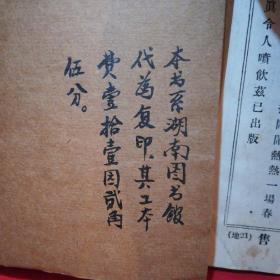 本书系湖南图书馆
代为复印，其工本
费壹拾壹圆贰角
伍分。
熱熱一場春
真令人噴飲茲已出版
售
（地21）